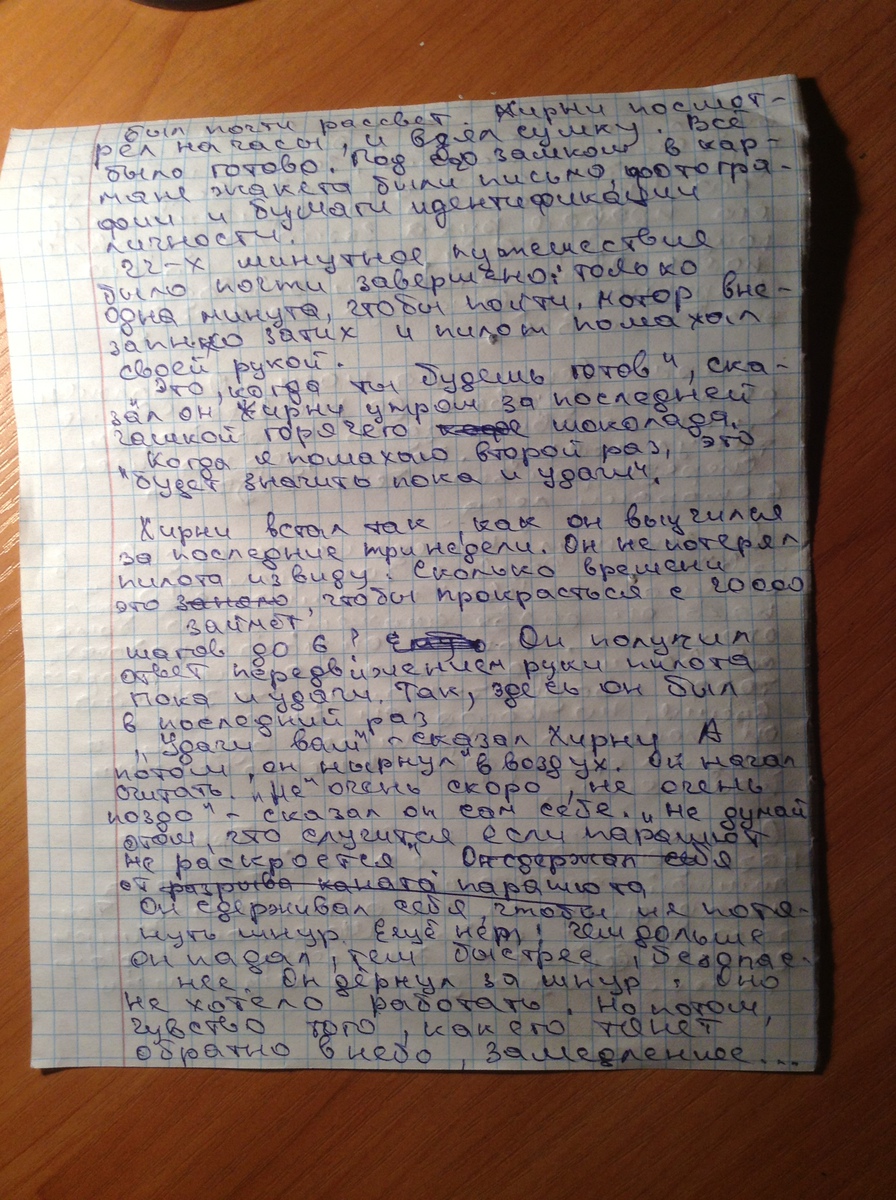 был почти рассвет. Хирни посмот-
рел на часы, и взял сумку. Всё
было готово. Под его замком в кар-
мане жакета были письмо, фотогра-
фии и бумаги идентификации
личности.
22-х минутное путешествия
было почти завершено: только
одна минута, чтобы пойти. мотор вне-
запно затих и пилот помахал
своей рукой.
"Это, когда ты будешь готов", ска-
зал он Хирни утром за последней
чашкой горячего шоколада.
Когда я помахаю второй раз, это
"будет значить пока и удачи".
Хирни встал так, как он выучился
за последние три недели. Он не потерял
пилота из виду. Сколько времени
это займёт, чтобы прокрасться с 20000
шагов до 6? Он получил
ответ передвижением руки пилота
пока и удачи. Так, здесь он был
в последний раз
"Удачи вам" - сказал Хирни А
потом, он нырнул в воздух. Он начал
считать. "Не очень скоро, не очень
поздо" - сказал он сам себе. "Не думай
о том, что случится если парашют
не раскроется".
Он сдерживал себя, чтобы не потя-
нуть шнур. Ещё нет; чем дольше
он падал, тем быстрее, безопас-
нее. Он дёрнул за шнур. Оно
не хотело работать. Но потом,
чувство того, как его тянет
обратно в небо, замедленное...